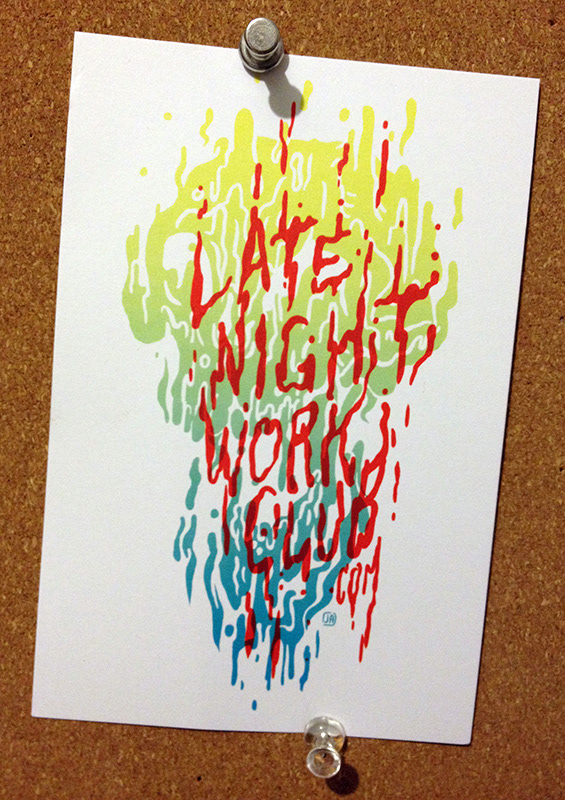 LATE
NIGHT
WORK
CLUB
.COM
JA